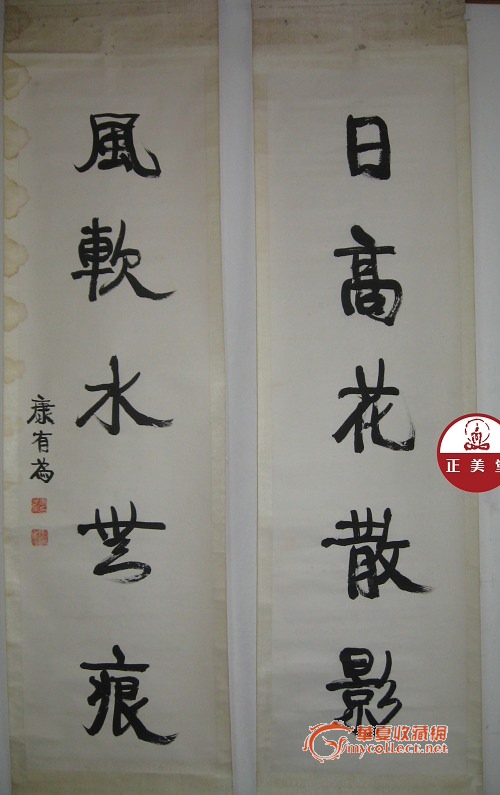 日高花散影
風軟水無痕
康有為
正美堂
華夏收藏網
mycollect.net